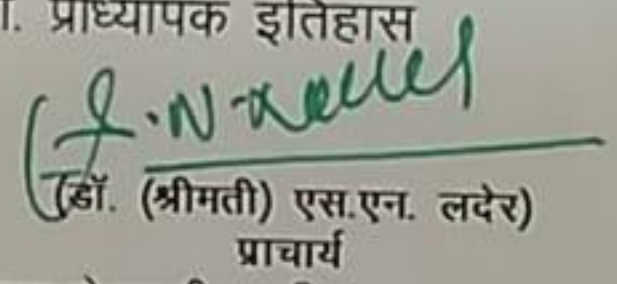 . प्राध्यापक इतिहास
(डॉ. (श्रीमती) एस.एन. लदेर)
प्राचार्य